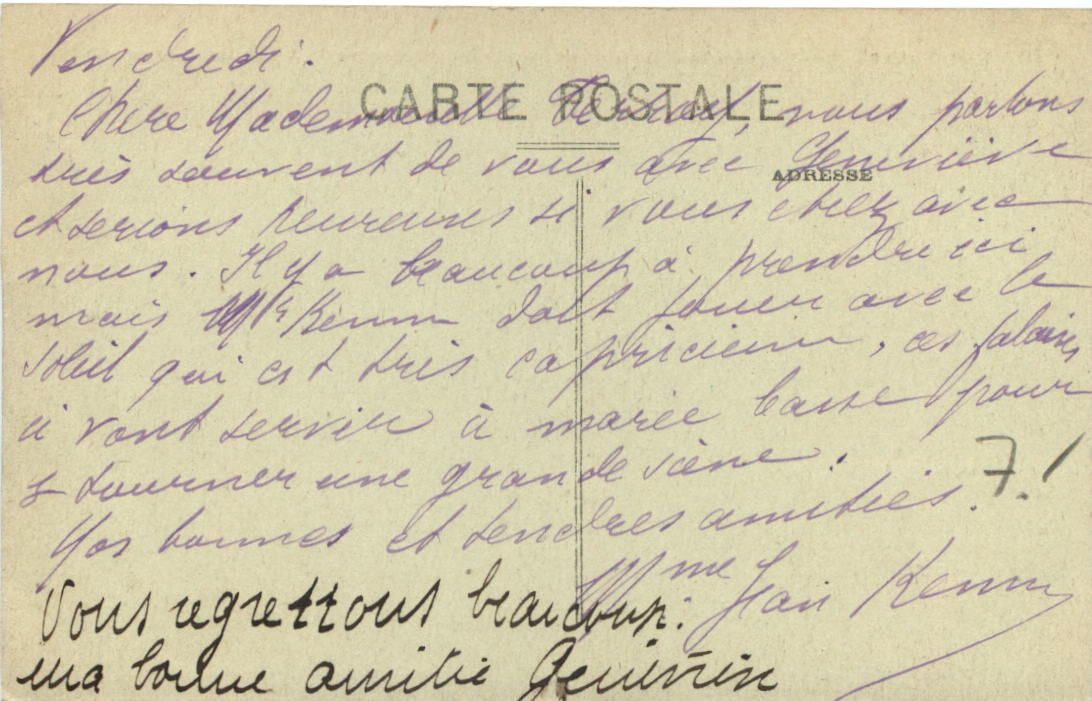 Vendredi.
CARTE POSTALE
Chère Mademoiselle, nous parlons
très souvent de vous avec Geneviève
ADRESSE
et serions heureuses si vous etiez avec
nous. Il y a beaucoup à prendre ici
mais Mr Kemm doit jouer avec le
soleil qui est très capricieux, ces falaises
ci vont servir à marée basse pour
y tourner une grande scène.
7./
Mes bonnes et tendres amitiés.
Mme Jean Kemm
Vous regrettons beaucoup.
ma bonne amitié Geneviève